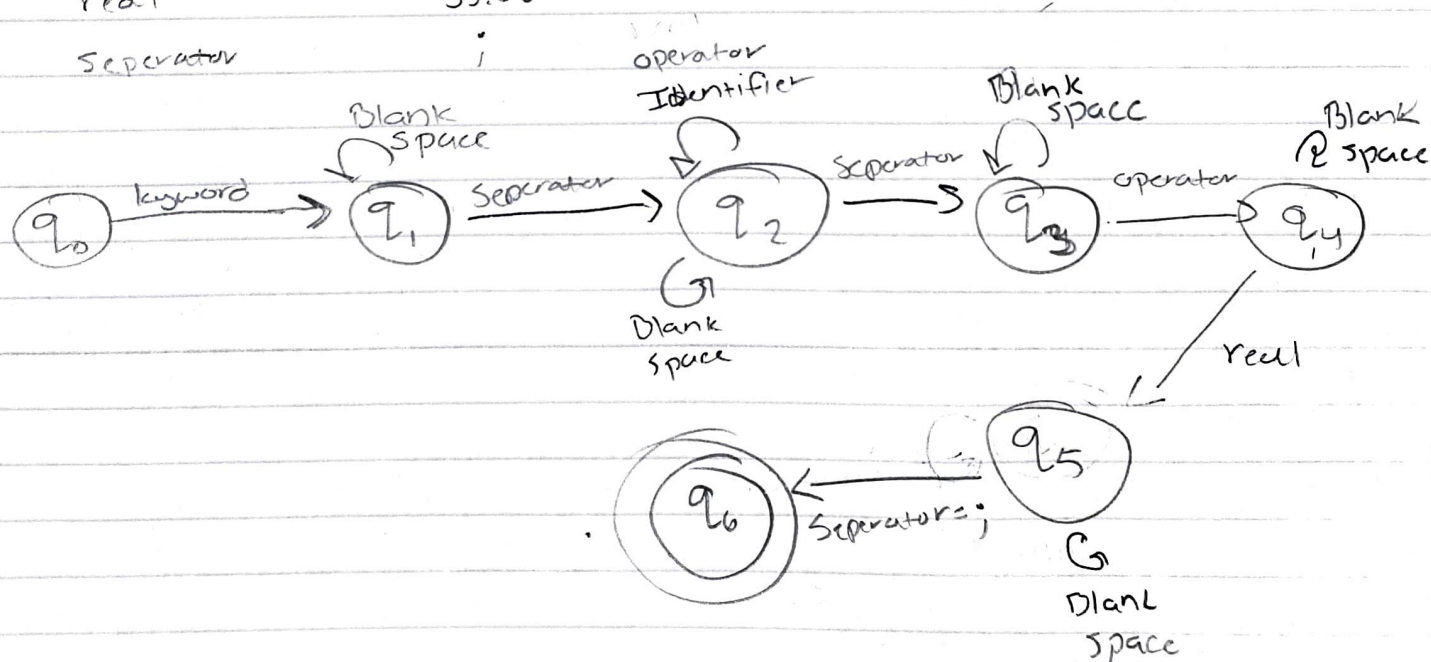 real
Seperator ;
operator
Identifier
Blank
space
Blank
spacc
Blank
space
keyword
Seperator
Seperator
operator
q0
q1
q2
q3
q4
Blank
space
real
q5
q6
Seperator=;
Blank
space